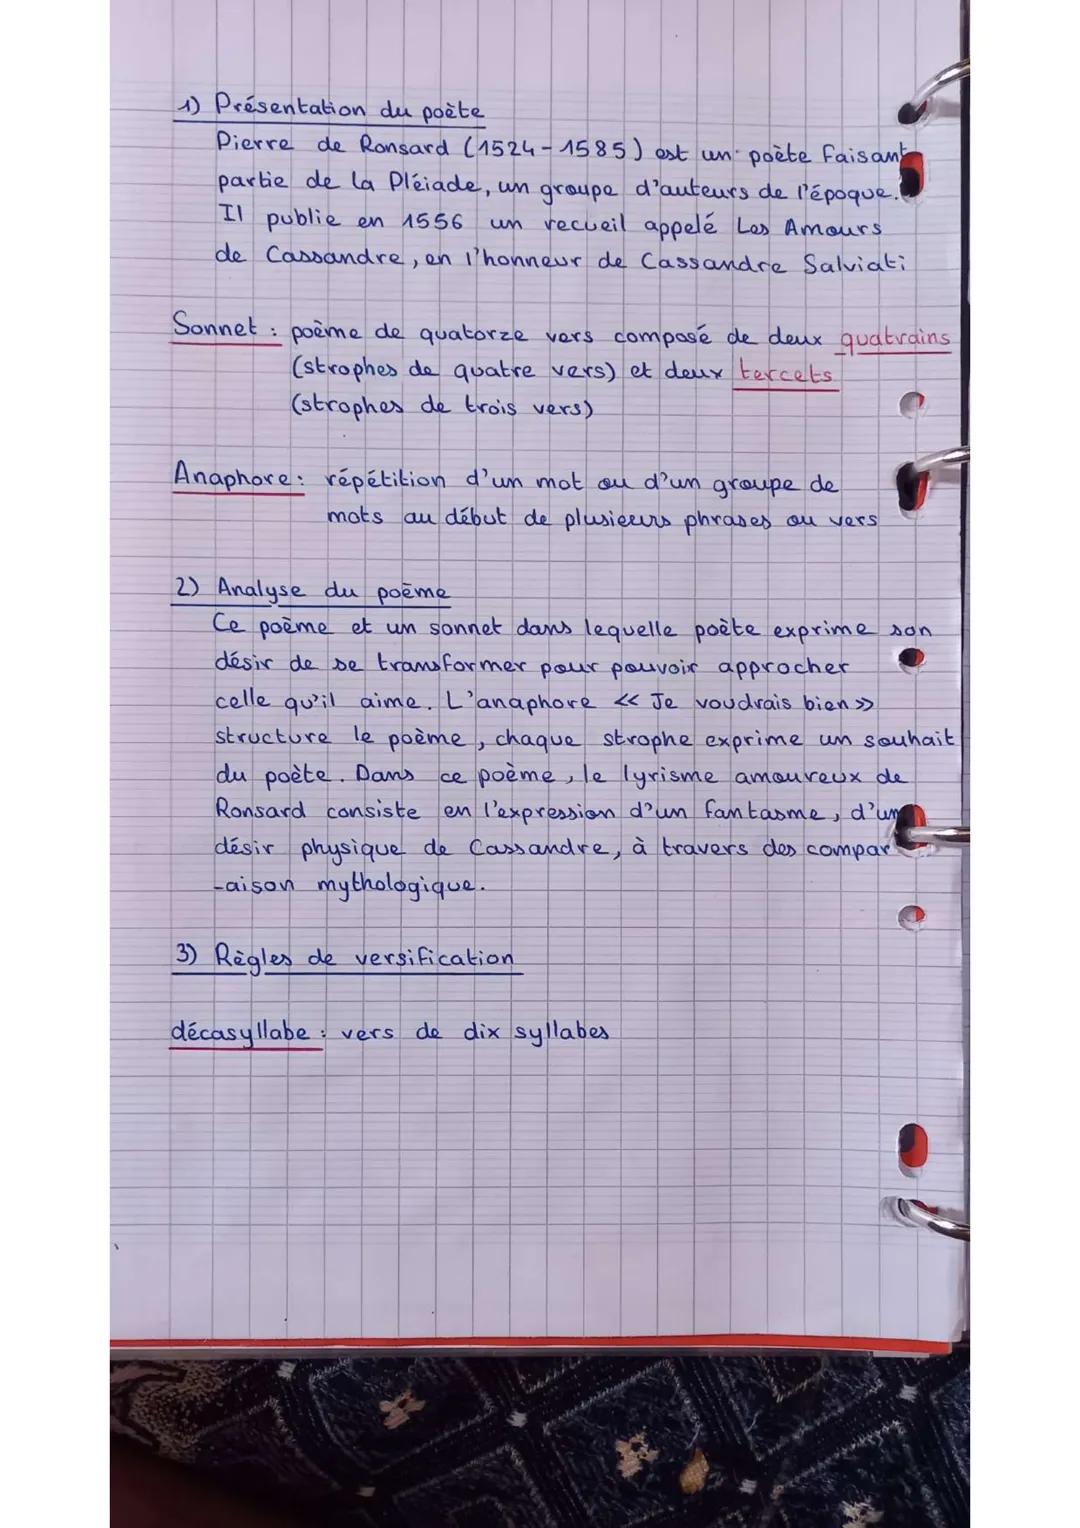 1) Présentation du poète
Pierre de Ronsard (1524-1585) est un poète faisant
partie de la Pléiade, un groupe d'auteurs de l'époque.
Il publie en 1556 un recueil appelé Les Amours
de Cassandre, en l'honneur de Cassandre Salviati
Sonnet : poème de quatorze vers composé de deux quatrains
(strophes de quatre vers) et deux tercets
(strophes de trois vers)
Anaphore : répétition d'un mot ou d'un groupe de
mots au début de plusieurs phrases ou vers
2) Analyse du poème
Ce poème et un sonnet dans lequelle poète exprime son
désir de se transformer pour pouvoir approcher
celle qu'il aime. L'anaphore << Je voudrais bien >>
structure le poème, chaque strophe exprime un souhait
du poète. Dans ce poème, le lyrisme amoureux de
Ronsard consiste en l'expression d'un fantasme, d'un
désir physique de Cassandre, à travers des compar
-aison mythologique.
3) Règles de versification
décasyllabe : vers de dix syllabes